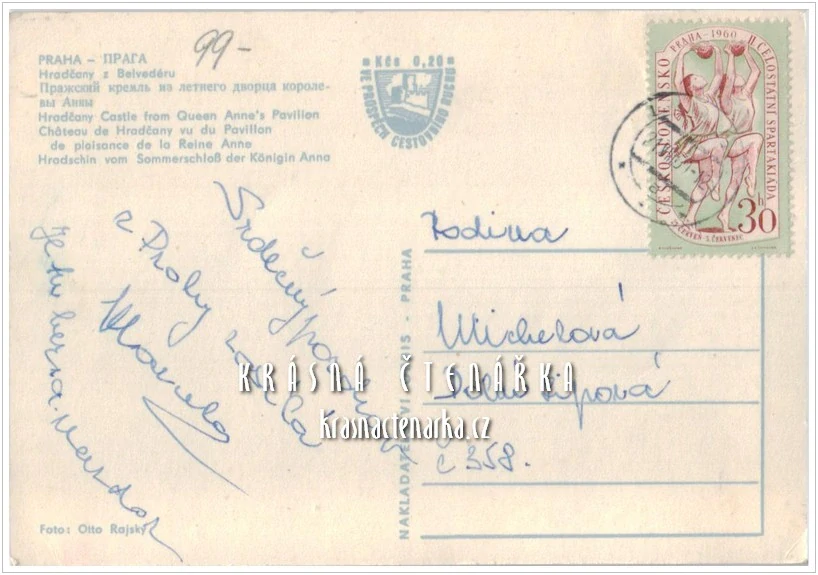 99-
PRAHA – ПРАГА
Hradčany z Belvedéru
Пражский кремль из летнего дворца короле-
вы Анны
Hradčany Castle from Queen Anne's Pavilion
Château de Hradčany vu du Pavillon
de plaisance de la Reine Anne
Hradschin vom Sommerschloß der Königin Anna
Kčs 0,20
VE PROSPĚCH CESTOVNÍHO RUCHU
ČESKOSLOVENSKO
PRAHA - 1960
II. CELOSTÁTNÍ SPARTAKIÁDA
30 h
Srdečný pozdrav
z Prahy
Rodina
Michelová
č 358.
NAKLADATELSTVÍ ORBIS - PRAHA
KRÁSNÁ ČTENÁŘKA
krasnactenarka.cz
Foto: Otto Rajský